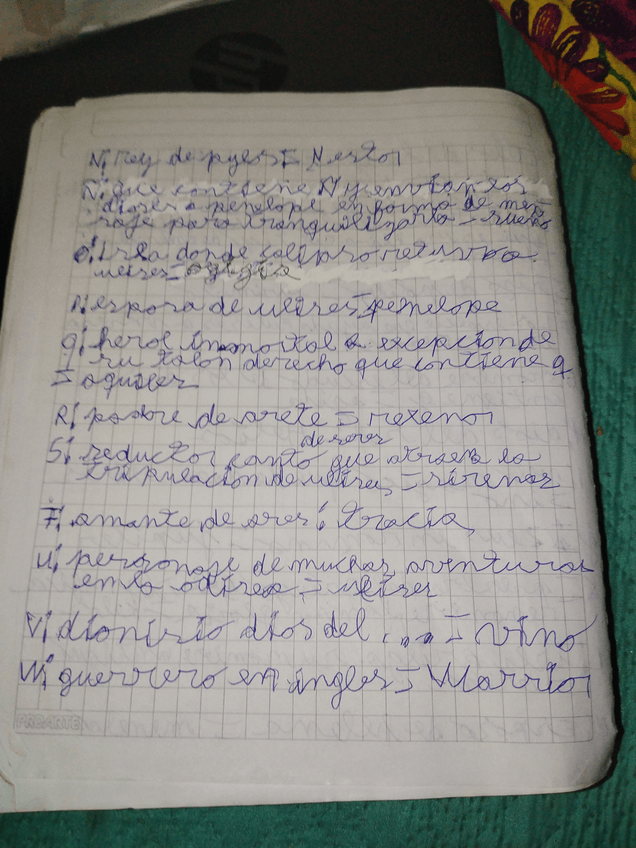 hp
N: rey de pyers = Nestor
Ñ: que contiene Ñ y envian los
dioses a penelope en forma de men
saje para tranquilizarla = sueño
O: isla donde calipso retuvo a
ulises = ogigia
P: esposa de ulises = penelope
Q: heroe inmortal a excepcion de
su talon derecho que contiene q
= aquiles
R: padre de arete = rexenor
de seres
S: seductor canto que atraera la
tripulacion de ulises = sirenas
T: amante de ares: tracia
U: personaje de muchas aventuras
en la odisea = ulises
V: dionisio dios del ... = vino
W: guerrero en ingles = Warrior